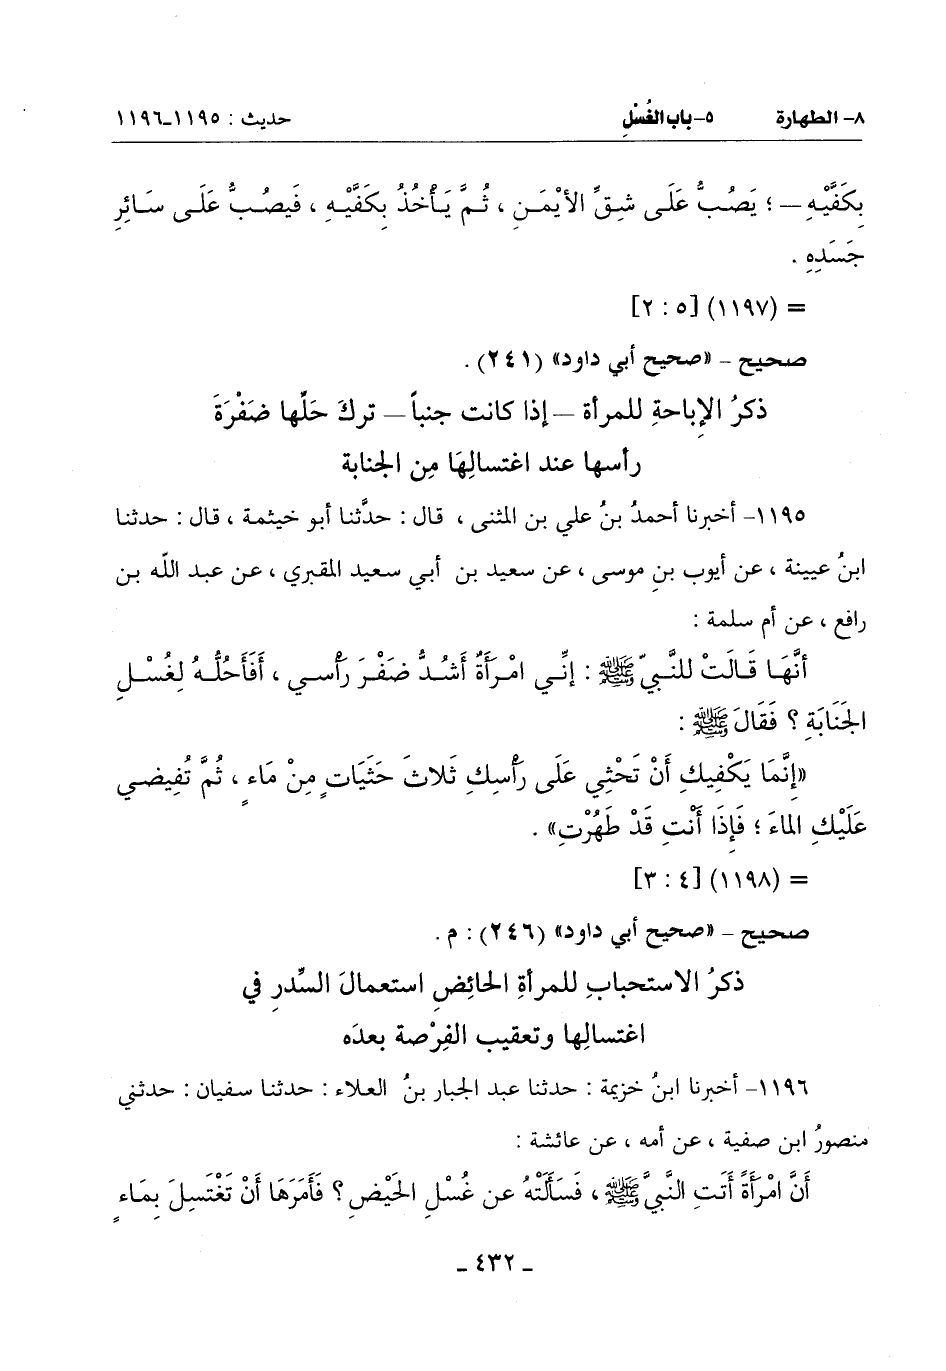 ٨- الطهارة ٥- باب الغُسْلِ حديث : ١١٩٥-١١٩٦
بِكَفَّيْهِ – ؛ يَصُبُّ عَلَى شِقِّ الأَيْمَنِ ، ثُمَّ يَأْخُذُ بِكَفَّيْهِ ، فَيَصُبُّ عَلَى سَائِرِ
جَسَدِهِ .
= (١١٩٧) [٥ : ٢]
صحيح - «صحيح أبي داود» (٢٤١) .
ذكرُ الإباحةِ للمرأة – إذا كانت جنباً – تركَ حَلِّها ضَفْرَةَ
رأسها عند اغتسالِهَا مِن الجنابة
١١٩٥- أخبرنا أحمدُ بنُ علي بن المثنى ، قال : حدَّثنا أبو خيثمة ، قال : حدثنا
ابنُ عيينة ، عن أيوب بنِ موسى ، عن سعيد بن أبي سعيد المقبري ، عن عبد الله بن
رافع ، عن أم سلمة :
أَنَّهَا قَالَتْ للنَّبيِّ ﷺ : إنِّي امْرَأَةٌ أَشُدُّ ضَفْرَ رَأْسي ، أَفَأَحُلُّهُ لِغُسْلِ
الجَنَابَةِ ؟ فَقَالَ ﷺ :
«إِنَّمَا يَكْفِيكِ أَنْ تَحْثِي عَلَى رَأْسِكِ ثَلاثَ حَثَيَاتٍ مِنْ مَاء ، ثُمَّ تُفِيضي
عَلَيْكِ المَاءَ ؛ فَإِذَا أَنْتِ قَدْ طَهُرْتِ» .
= (١١٩٨) [٤ : ٣]
صحيح - «صحيح أبي داود» (٢٤٦) : م .
ذكرُ الاستحبابِ للمرأةِ الحائِضِ استعمالَ السِّدرِ في
اغتسالِها وتعقيب الفِرْصة بعدَه
١١٩٦- أخبرنا ابنُ خزيمة : حدثنا عبد الجبار بنُ العلاء : حدثنا سفيان : حدثني
منصورُ ابن صفية ، عن أمه ، عن عائشة :
أَنَّ امْرَأَةً أَتَتِ النَّبيَّ ﷺ ، فَسَأَلَتْهُ عن غُسْلِ الحَيْضِ ؟ فَأَمَرَهَا أَنْ تَغْتَسِلَ بِمَاءٍ
- ٤٣٢ -